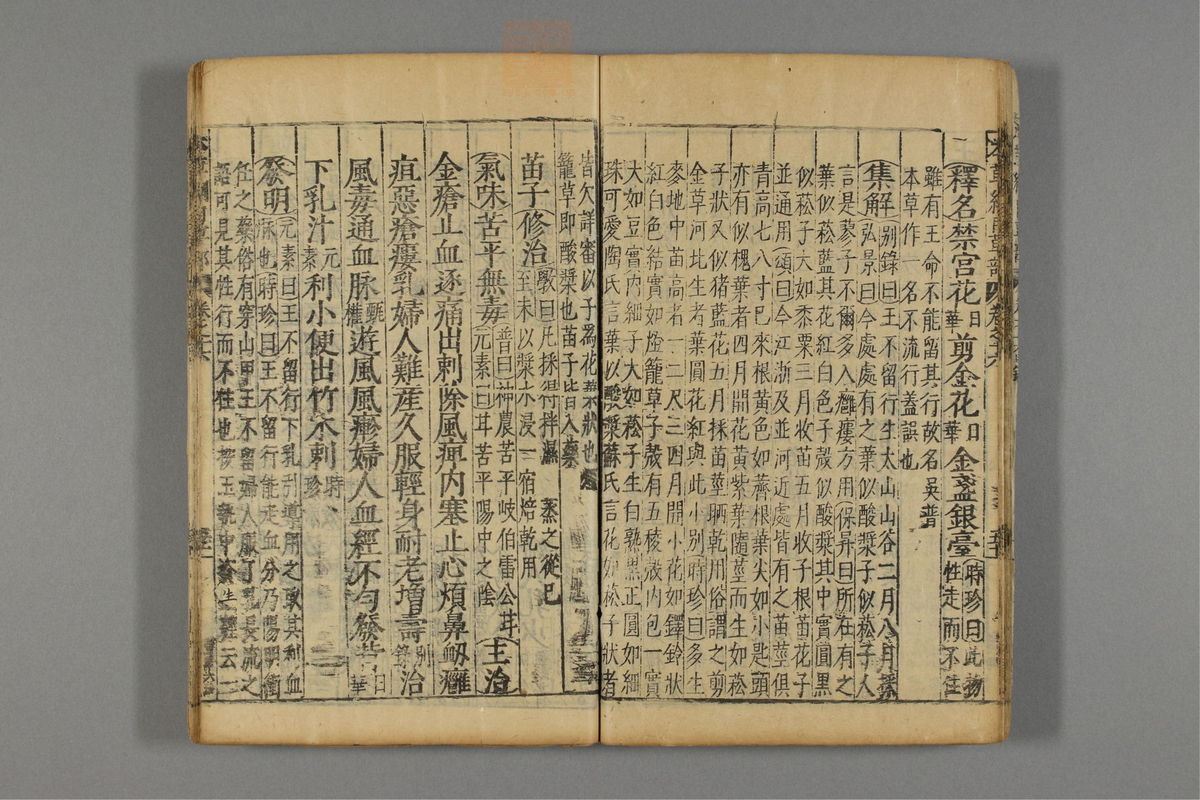 釋名禁宮花日華剪金花日華金盞銀臺時珍曰此物性走而不住
雖有王命不能留其行故名吳普
本草作一名不流行蓋誤也
集解别錄曰王不留行生太山山谷二月八月採
弘景曰今處處有之葉似酸漿子似菘子人
言是蓼子不爾多入癰瘻方用保昇曰所在有之
葉似菘藍其花紅白色子殼似酸漿其中實圓黑
似菘子大如黍粟三月收苗五月收子根苗花子
並通用頌曰今江浙及並河近處皆有之苗莖俱
青高七八寸已來根黃色如薺根葉尖如小匙頭
亦有似槐葉者四月開花黃紫葉隨莖而生如菘
子狀又似猪藍花五月採苗莖晒乾用俗謂之剪
金草河北生者葉圓花紅與此小别時珍曰多生
麥地中苗高者一二尺三四月開小花如鐸鈴狀
紅白色結實如燈籠草子殼有五稜殼内包一實
大如豆實内細子大如菘子生白熟黑正圓如細
珠可愛陶氏言葉似酸漿蘇氏言花如菘子狀者
皆欠詳審以子為花葉狀也
籠草即酸漿也苗子皆入藥
苗子修治斆曰凡採得拌濕蒸之從巳至未以漿水浸一宿焙乾用
氣味苦平無毒普曰神農苦平岐伯雷公甘元素曰甘苦平陽中之陰主治
金瘡止血逐痛出刺除風痺内塞止心煩鼻衂癰
疽惡瘡瘻乳婦人難産久服輕身耐老增壽别錄治
風毒通血脉甄權遊風風瘮婦人血經不勻發背日華
下乳汁元素利小便出竹木刺時珍
發明元素曰王不留行下乳引導用之取其利血脉也時珍曰王不留行能走血分乃陽明衝
任之藥俗有穿山甲王不留婦人服了乳長流之
語可見其性行而不住也按王執中資生經云一